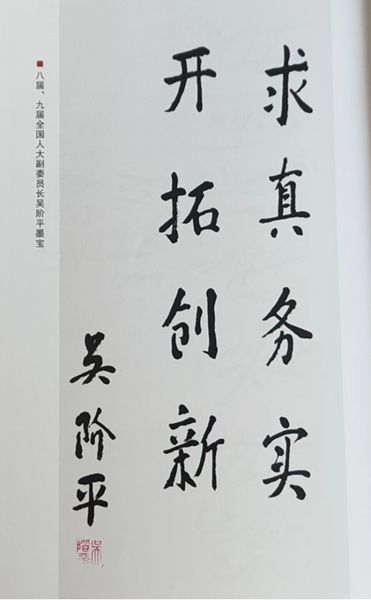 求真务实
开拓创新
吴阶平
八届、九届全国人大副委员长吴阶平墨宝